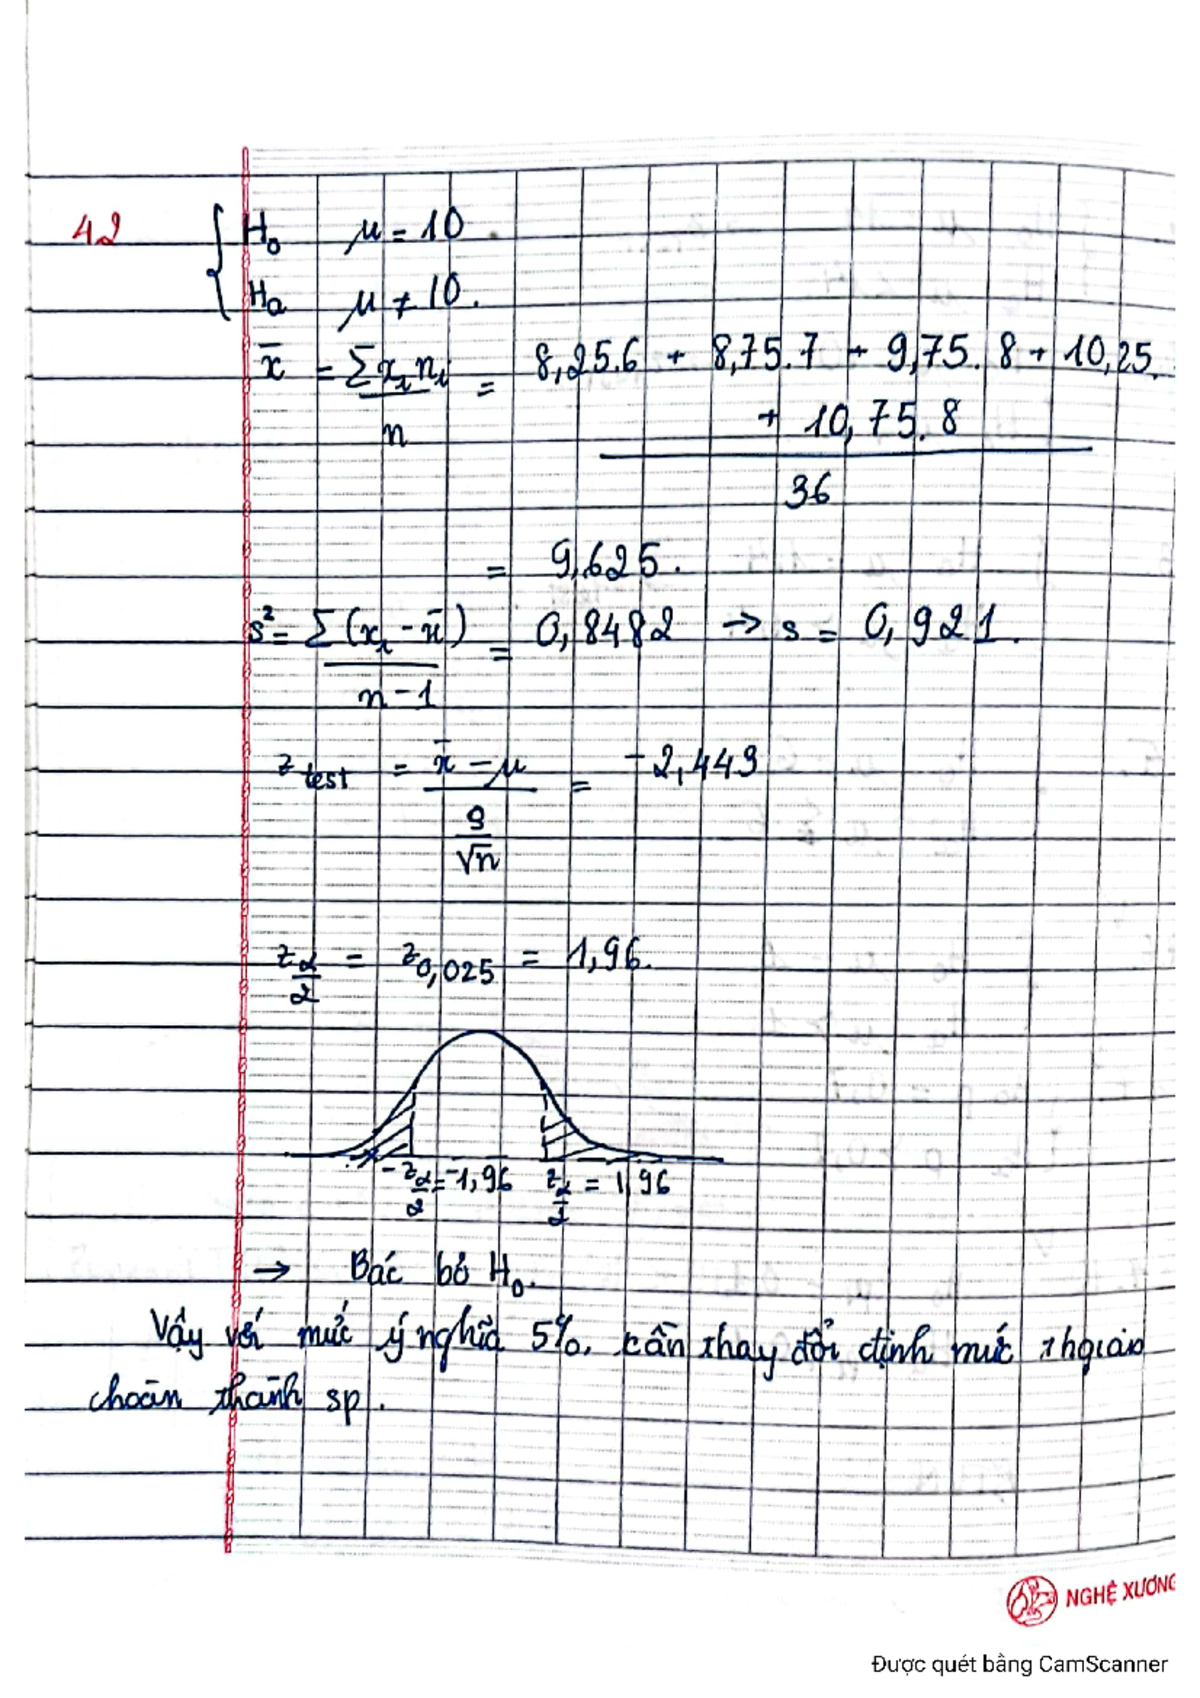 42 { H₀ μ = 10
Hₐ μ ≠ 10.
x̄ = Σxᵢnᵢ / n = 8,25.6 + 8,75.7 + 9,75.8 + 10,25.
+ 10,75.8
36
= 9,625.
s² = Σ(xᵢ - x̄) / n - 1 = 0,8482 → s = 0,921.
z test = x̄ - μ / s/√n = -2,443
z α/2 = z 0,025 = 1,96.
-z α/2 = -1,96 z α/2 = 1,96
→ Bác bỏ H₀.
Vậy với mức ý nghĩa 5%, cần thay đổi định mức thgian
hoàn thành sp.
NGHỆ XƯƠNG
Được quét bằng CamScanner